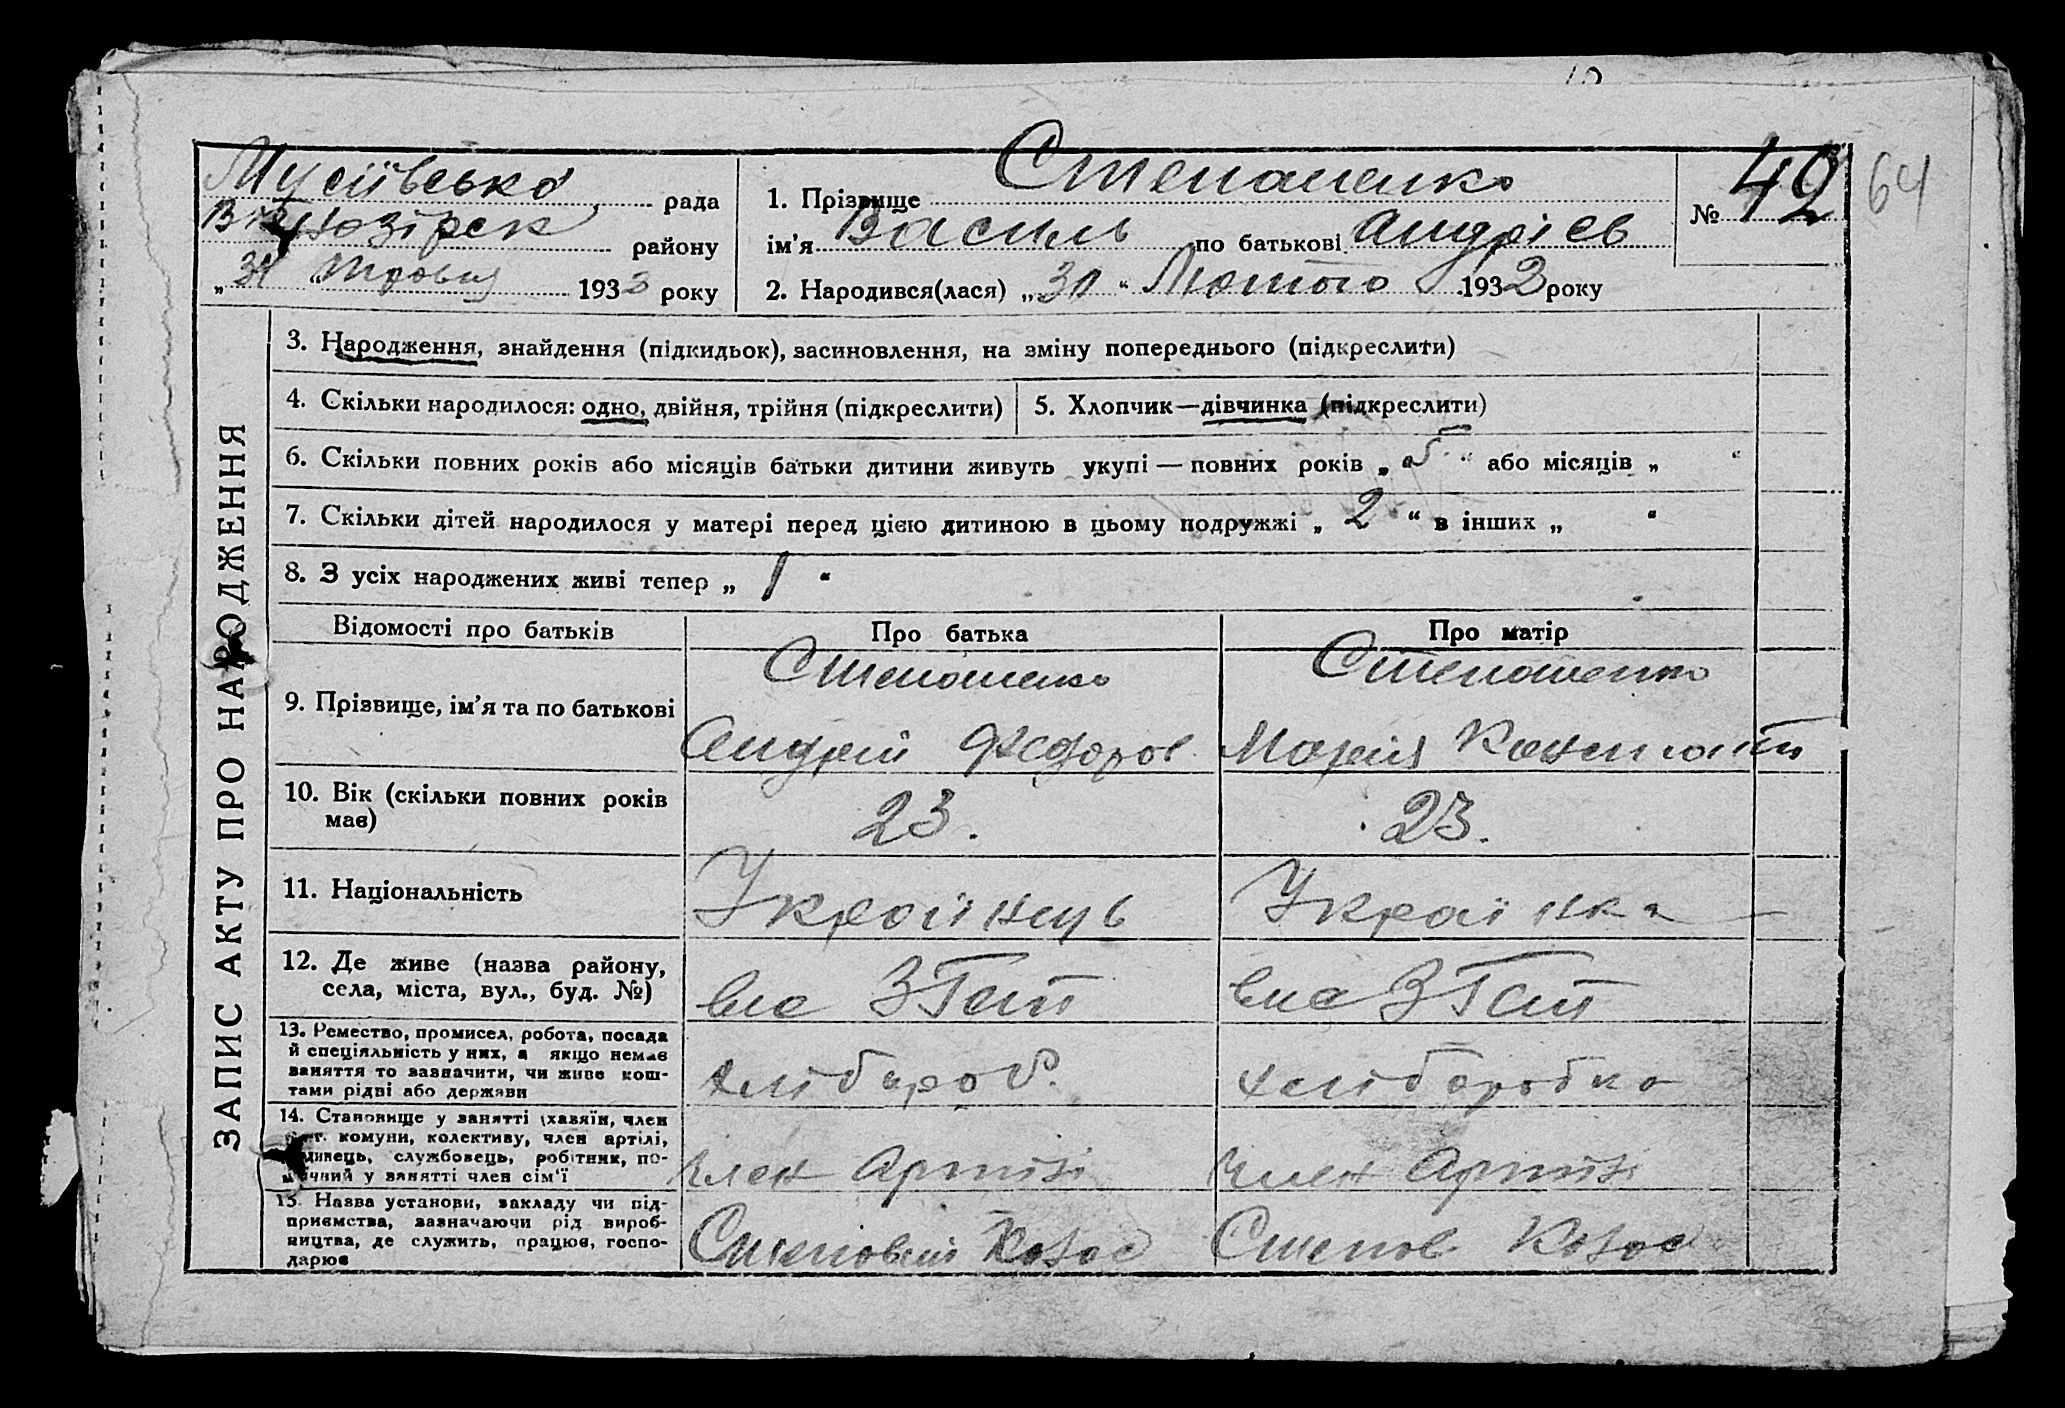 64
Мусіївська рада
району
„31“ Травня 1933 року
1. Прізвище Степаненко
ім'я Василь по батькові Андріев
№ 42
2. Народився(лася) „31“ Лютого 1932 року
ЗАПИС АКТУ ПРО НАРОДЖЕННЯ
3. Народження, знайдення (підкидьок), засиновлення, на зміну попереднього (підкреслити)
4. Скільки народилося: одно, двійня, трійня (підкреслити) 5. Хлопчик—дівчинка (підкреслити)
6. Скільки повних років або місяців батьки дитини живуть укупі — повних років „5“ або місяців „ “
7. Скільки дітей народилося у матері перед цією дитиною в цьому подружжі „2“ в інших „ “
8. З усіх народжених живі тепер „1“
Відомості про батьків Про батька Про матір
9. Прізвище, ім'я та по батькові
Степаненко Степаненко
Андрій Федоров Марія Констант
10. Вік (скільки повних років
має)
23. 23.
11. Національність Українць Українка
12. Де живе (назва району,
села, міста, вул., буд. №)
13. Ремество, промисел, робота, посада
й спеціяльність у них, а якщо немає
заняття то зазначити, чи живе кош-
тами рідні або держави
хлібороб. хліборобка
14. Становище у занятті (хазяїн, член
комуни, колективу, член артілі,
службовець, робітник, по-
у занятті член сім'ї
член Артілі член Артілі
15. Назва установи, закладу чи під-
приємства, зазначаючи рід вироб-
ництва, де служить, працює, госпо-
дарює
Степовий Колос Степов Колос